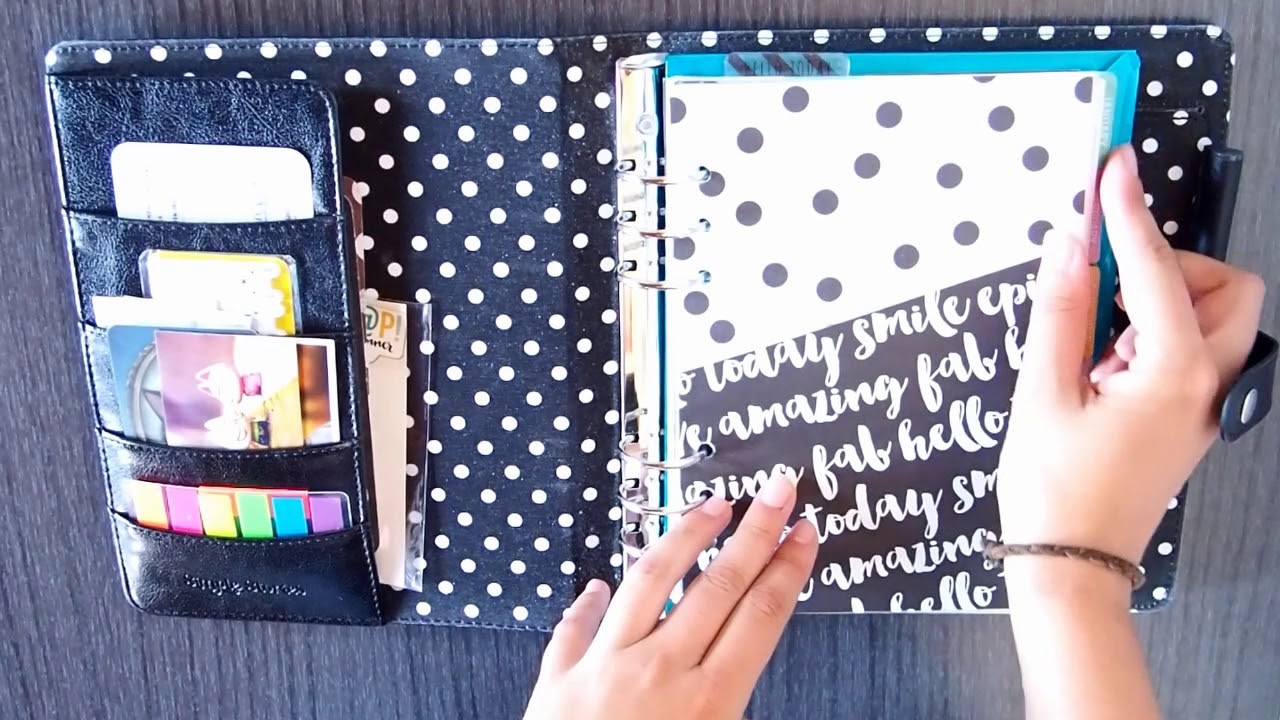 Simple Stories
HELLO TODAY
today smile epi
amazing fab
azing fab hello
today sm
amazing
hello